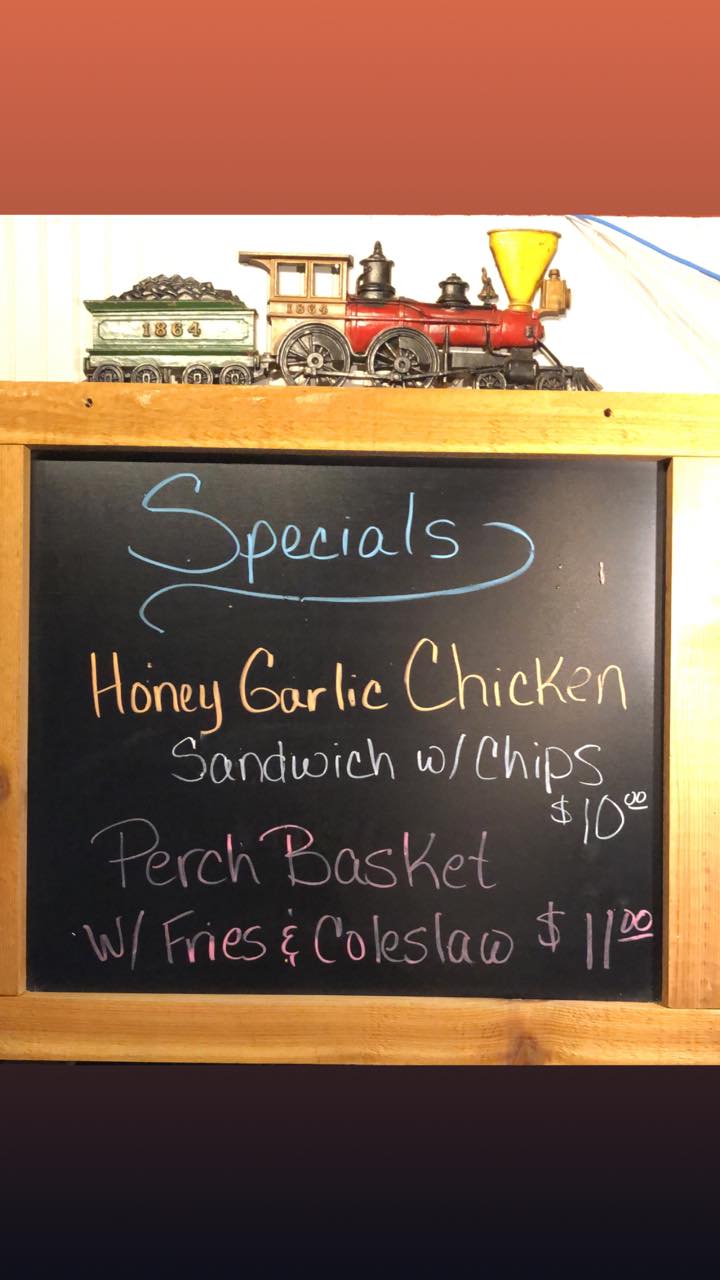 1864
1864
Specials
Honey Garlic Chicken
Sandwich w/ Chips
$10.00
Perch Basket
w/ Fries & Coleslaw $11.00